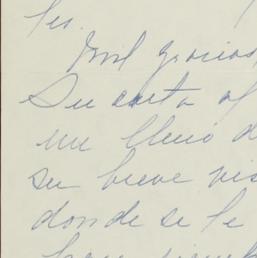 Mil gracias
Su carta
me lleno d
su breve vis
donde se le